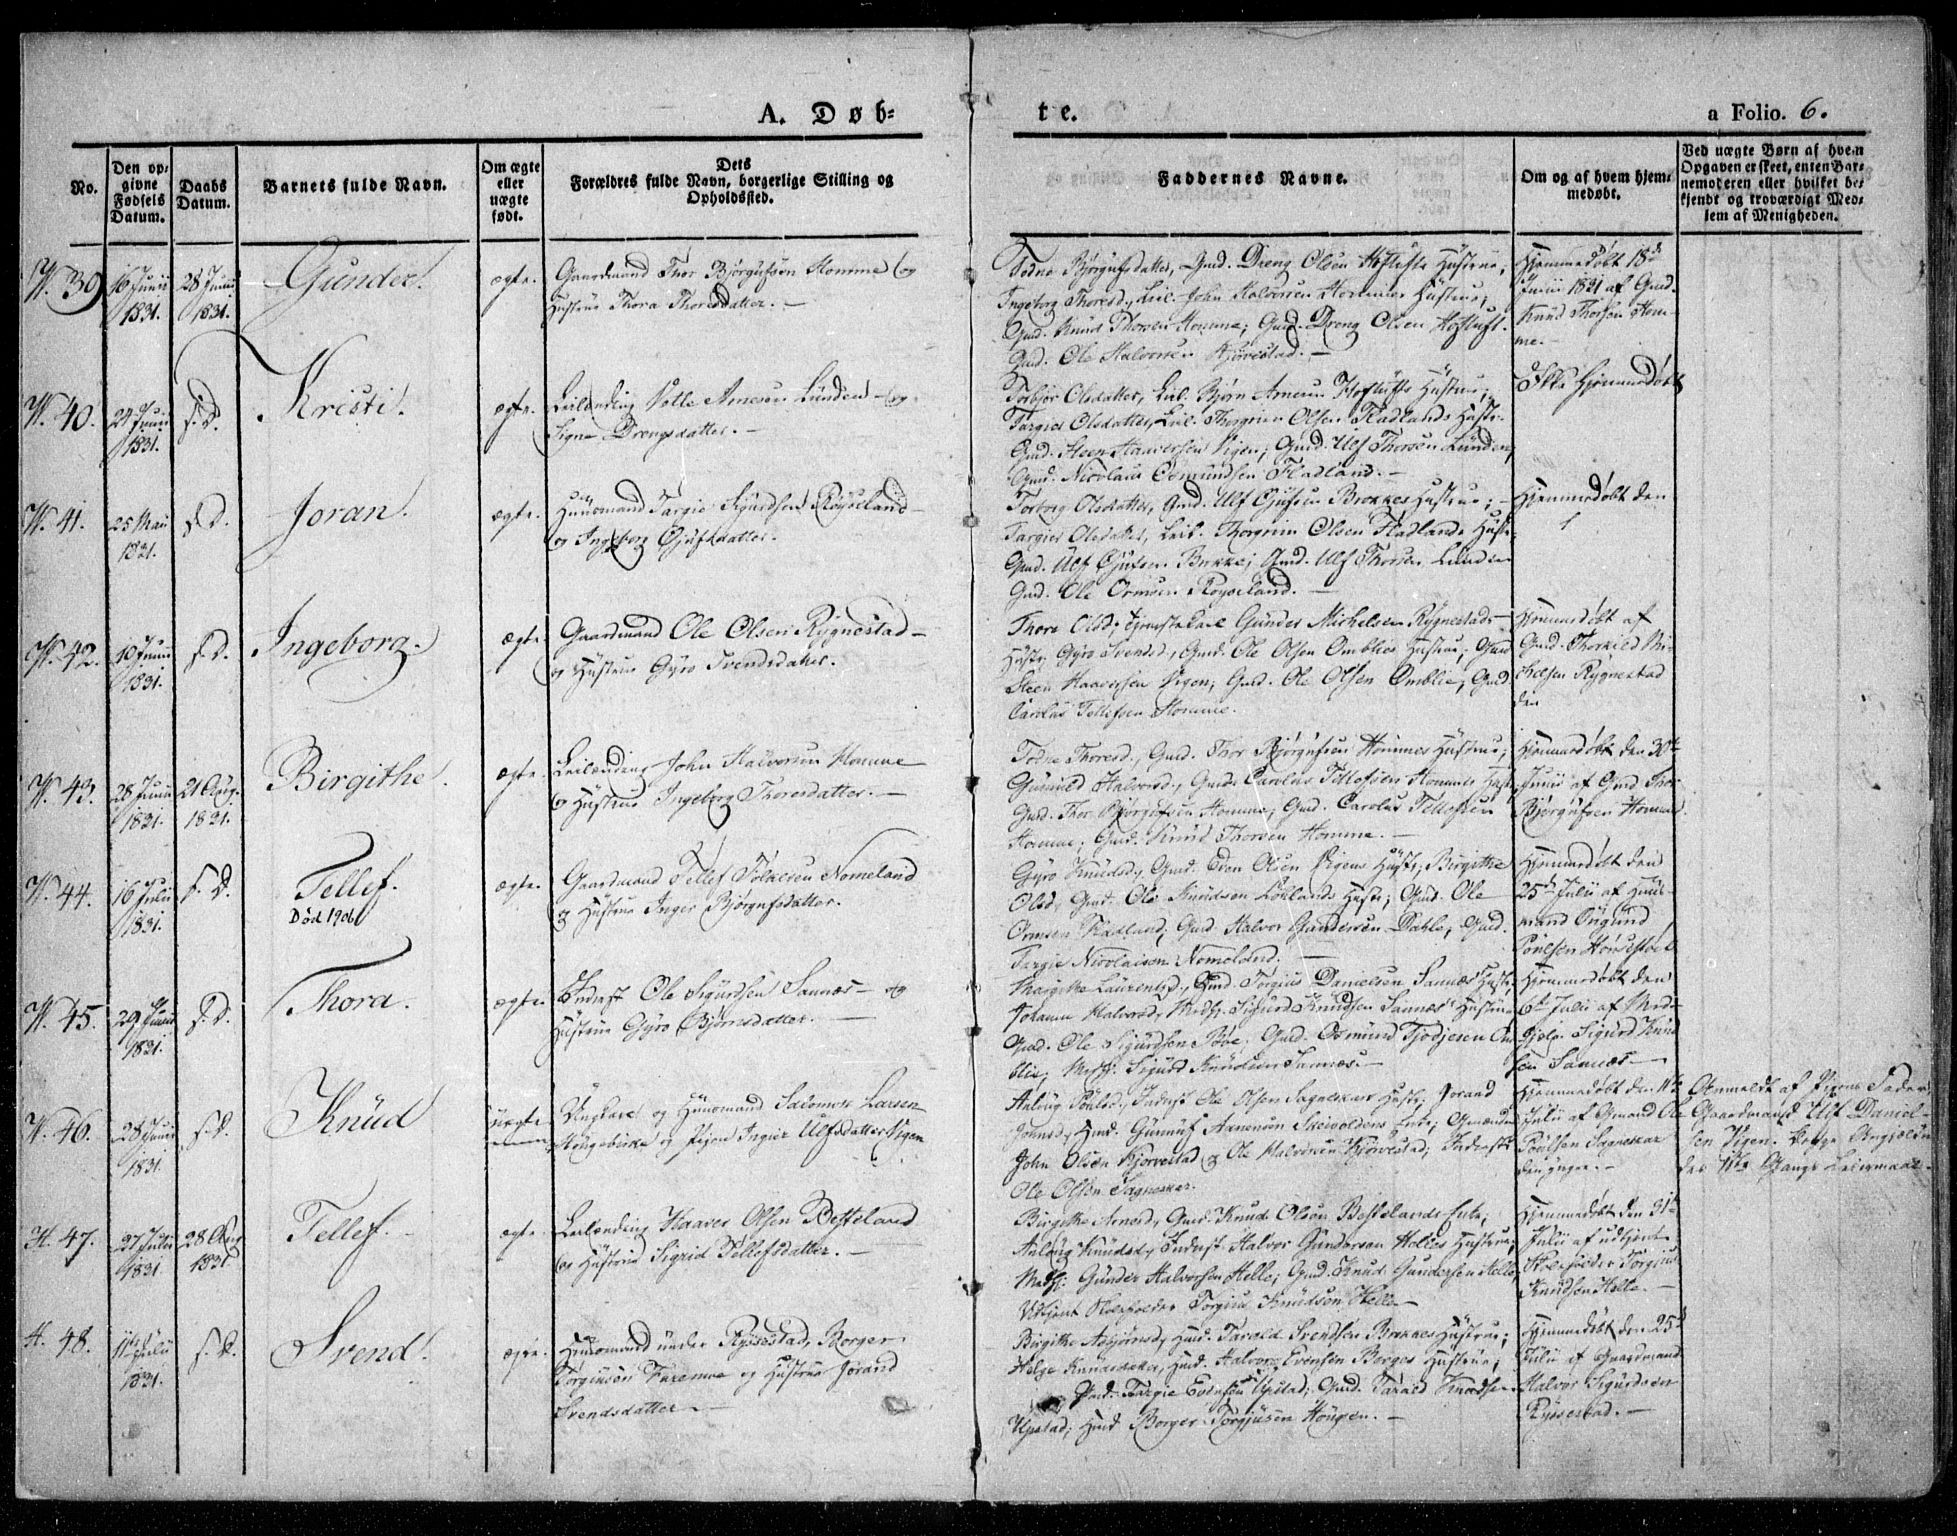 A. Døb=
te.
a Folio. 6.
No.
Den op=
givne
Fødsels
Datum.
Daabs
Datum.
Barnets fulde Navn.
Om ægte
eller
uægte
født.
Dets
Forældres fulde Navn, borgerlige Stilling og
Opholdssted.
Faddernes Navne.
Om og af hvem hjem=
medøbt.
Ved uægte Børn af hvem
Opgaven er skeet, enten Bar=
nemoderen eller hvilket be=
kjendt og troværdigt Med=
lem af Menigheden.
N. 39
16 Junii
1831.
28 Junii
1831.
Gunder.
ægte.
Gaardmand Thor Bjørgufsøn Homme og
Hustrue Thora Thoresdatter. —
Todne Bjørgufsdatter, Gmd. Dreng Olsen Hoftufts Hustrue;
Ingeborg Thoresd., Leil. John Halvorsen Hommes Hustrue;
Gmd. Knud Thorsen Homme; Gmd. Dreng Olsen Hoftuft.
Gmd. Ole Halvorsen Kjørvestad. —
Hjemmedøbt 18de
Junii 1831 af Gmd.
Knud Thorsen Hom=
me. —
N. 40.
24 Junii
1831.
s. D.
Kristi.
ægte.
Leilænding Wolle Arnesen Lunden — og
Signe Drengsdatter. —
Torbjør Olsdatter, Leil. Bjørn Arnesen Hoftufts Hustrue;
Targier Olsdatter, Leil. Thorgrim Olsen Fladlands Hustr.
Gmd. Steen Haaversen Vigen; Gmd. Ulf Thorsen Lunden;
Gmd. Nicolaus Osmundsen Fladland. —
Ikke hjemmedøbt
N. 41.
25 Maii
1831.
s. D.
Joran.
ægte.
Huusmand Targie Sigurdsen Røyseland —
og Ingeborg Gjufsdatter.
Torborg Olsdatter, Gmd. Ulf Gjufsen Brokkes Hustrue; —
Targier Olsdatter, Leil. Thorgrim Olsen Fladlands Hustr.
Gmd. Ulf Gjufsen Brokke; Gmd. Ulf Thorsen Lunden
Gmd. Ole Ormsen Røyseland. —
Hjemmedøbt den
N. 42.
10 Junii
1831.
s. D.
Ingeborg.
ægte.
Gaardmand Ole Olsen Rygnestad —
og Hustrue Gyro Svendsdatter.
Thore Olsd., Gunder Michelsen Rygnestads
Hustr; Gyro Svendsd., Gmd. Ole Olsen Omblies Hustrue; Gmd
Steen Haaversen Vigen; Gmd. Ole Olsen Omblie; Gmd.
Carolus Tellefsen Homme.
Hjemmedøbt af
Gmd. Thorkild Mi=
chelsen Rygnestad
den
N. 43.
28 Junii
1831.
21 Aug.
1831.
Birgithe.
ægte.
Leilænding John Halvorsen Homme
og Hustrue Ingeborg Thoresdatter. —
Todne Thoresd., Gmd. Thor Bjørgufsen Hommes Hustrue;
Gunnild Halvorsd., Gmd. Carolus Tellefsen Hommes Hustr;
Gmd. Thor Bjørgufsen Homme; Gmd. Carolus Tellefsen
Homme; Gmd. Knud Thorsen Homme. —
Hjemmedøbt den 30te
Junii af Gmd Thor
Bjørgufsen Homme.
N. 44.
16 Julii
1831.
s. D.
Tellef.
Død 1906
ægte.
Gaardmand Tellef Folkesen Nomeland
og Hustrue Inger Bjørgufsdatter.
Gyro Knudsd., Gmd. Even Olsen Vigens Hustr; Birgithe
Olsd., Gmd. Ole Knudsen Løklands Hustr; Gmd. Ole
Ormsen Fladland; Gmd. Halvor Gundersen Dahle; Gmd.
Targie Nicolaisen Nomeland. —
Hjemmedøbt den
25de Julii af Huus=
mand Osgund
Poulsen
N. 45.
29 Junii
1831.
s. D.
Thora.
ægte.
Inderst Ole Sigurdsen Sannæs — og
Hustrue Gyro Bjørnsdatter. —
Margithe Laurentzd., Gmd. Torgius Danielsen Sannæs Hustr.
Johanne Halvorsd., Medhj. Sigurd Knudsen Sannæs Hustrue
Gmd. Ole Sigurdsen Bøve; Gmd. Osmund Tjodjesen Om=
blie; Medhj. Sigurd Knudsen Sannæs. —
Hjemmedøbt den
6te Julii af Med=
hjelp. Sigurd Knud
sen Sannæs —
N. 46.
28 Junii
1831.
s. D.
Knud
uægte
Ungkarl og Huusmand Salomon Larsen
Haugebirke og Pigen Ingier Ulfsdatter Vigen
Anlaug Poulsd., Inderst Ole Olsen Sagneskars Hustr; Jorand
Johnsd., Gmd. Gunnuf Arnensen Skevoldens Enke; Gmændene
John Olsen Kjørvestad og Ole Halvorsen Kjørvestad; Inderst
Ole Olsen Sagneskar.
Hjemmedøbt den 11te
Julii af Gmand Ole
Poulsen Sagneskar
den yngre. —
Anmeldt af Pigens Fader
Gaardmand Ulf Daniel=
sen Vigen. Begge Angjeldn
des 1ste Gangs Leiermaal.
N. 47.
27 Julii
1831.
28 Aug
1831
Tellef.
ægte.
Leilænding Haaver Olsen Besteland
og Hustrue Sigrid Tellefsdatter. —
Birgithe Arnesd., Gmd. Knud Olsøn Bestelands Enke;
Anlaug Knudsd., Inderst Halvor Gundersen Helles Hustrue;
Medhj: Gunder Halvorsen Helle; Gmd. Knud Gundersen Helle;
Udtjent Skoleholder Torgius Knudsen Helle —
Hjemmedøbt den 31te
Julii af udtjent
Skoleholder Torgius
Knudsen Helle. —
N. 48.
11te Julii
1831.
s. D.
Svend.
ægte.
Huusmand under Ryssestad, Borger
Torgiusen Faremoe og Hustrue Jorand
Svendsdatter —
Birgithe Asbjørnsd., Gmd. Tarald Svendsen Brokkes Hustrue;
Helge Knudsdatter, Gmd. Halvor Evensen Borges Hustrue;
Gmd. Targie Evensøn Upstad; Gmd. Tarald Knudsen
Upstad; Hmd Borger Torgjusøn Hougen. —
Hjemmedøbt den 25de
Julii af Gaardmand
Halvor Sigurdsen
Ryssestad. —